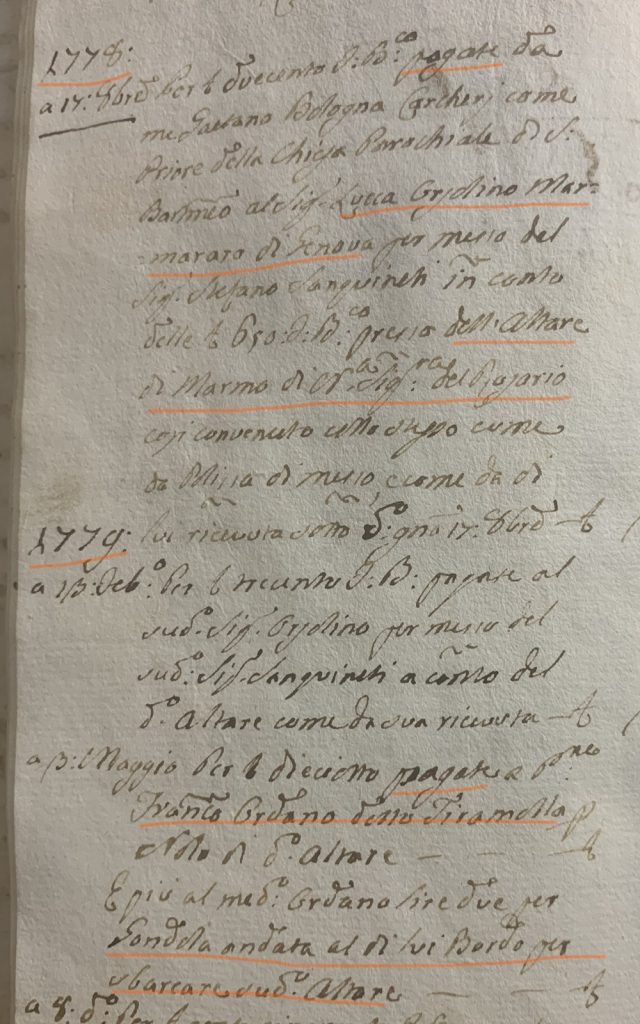 1778:
a 17: 8brē Per £ duecento F: B:co pagate da
me Gaetano Bologna Carcheri come
Priore della Chiesa Parochiale di S:
Bartm̄eo al Sig.r Lucca Orsolino Mar=
=mararo di Genova per messo del
Sig.r Stefano Sanguineti in conto
delle £ 650: F: B:co presso dell'Altare
di Marmo di N.a Sig.ra del Rosario
così convenuto collo stesso come
da Polissa di messo, e come da di
lui ricevuta sotto d.o gno 17: 8brē — £
1779:
a 13: Feb.o Per £ trecento F: B: pagate al
sud.o Sig.r Orsolino per messo del
sud.o Sig.r Sanguineti a conto del
d.o Altare come da sua ricevuta — £
a 13: Maggio Per £ dieciotto pagate a
Fran.co Ordano detto Tiramolla p
Nolo di d.o Altare — — — £
E più al med.o Ordano lire due per
Gondola andata al di lui Bordo per
sbarcare sud.o Altare — — £
a 8: d.o Per £